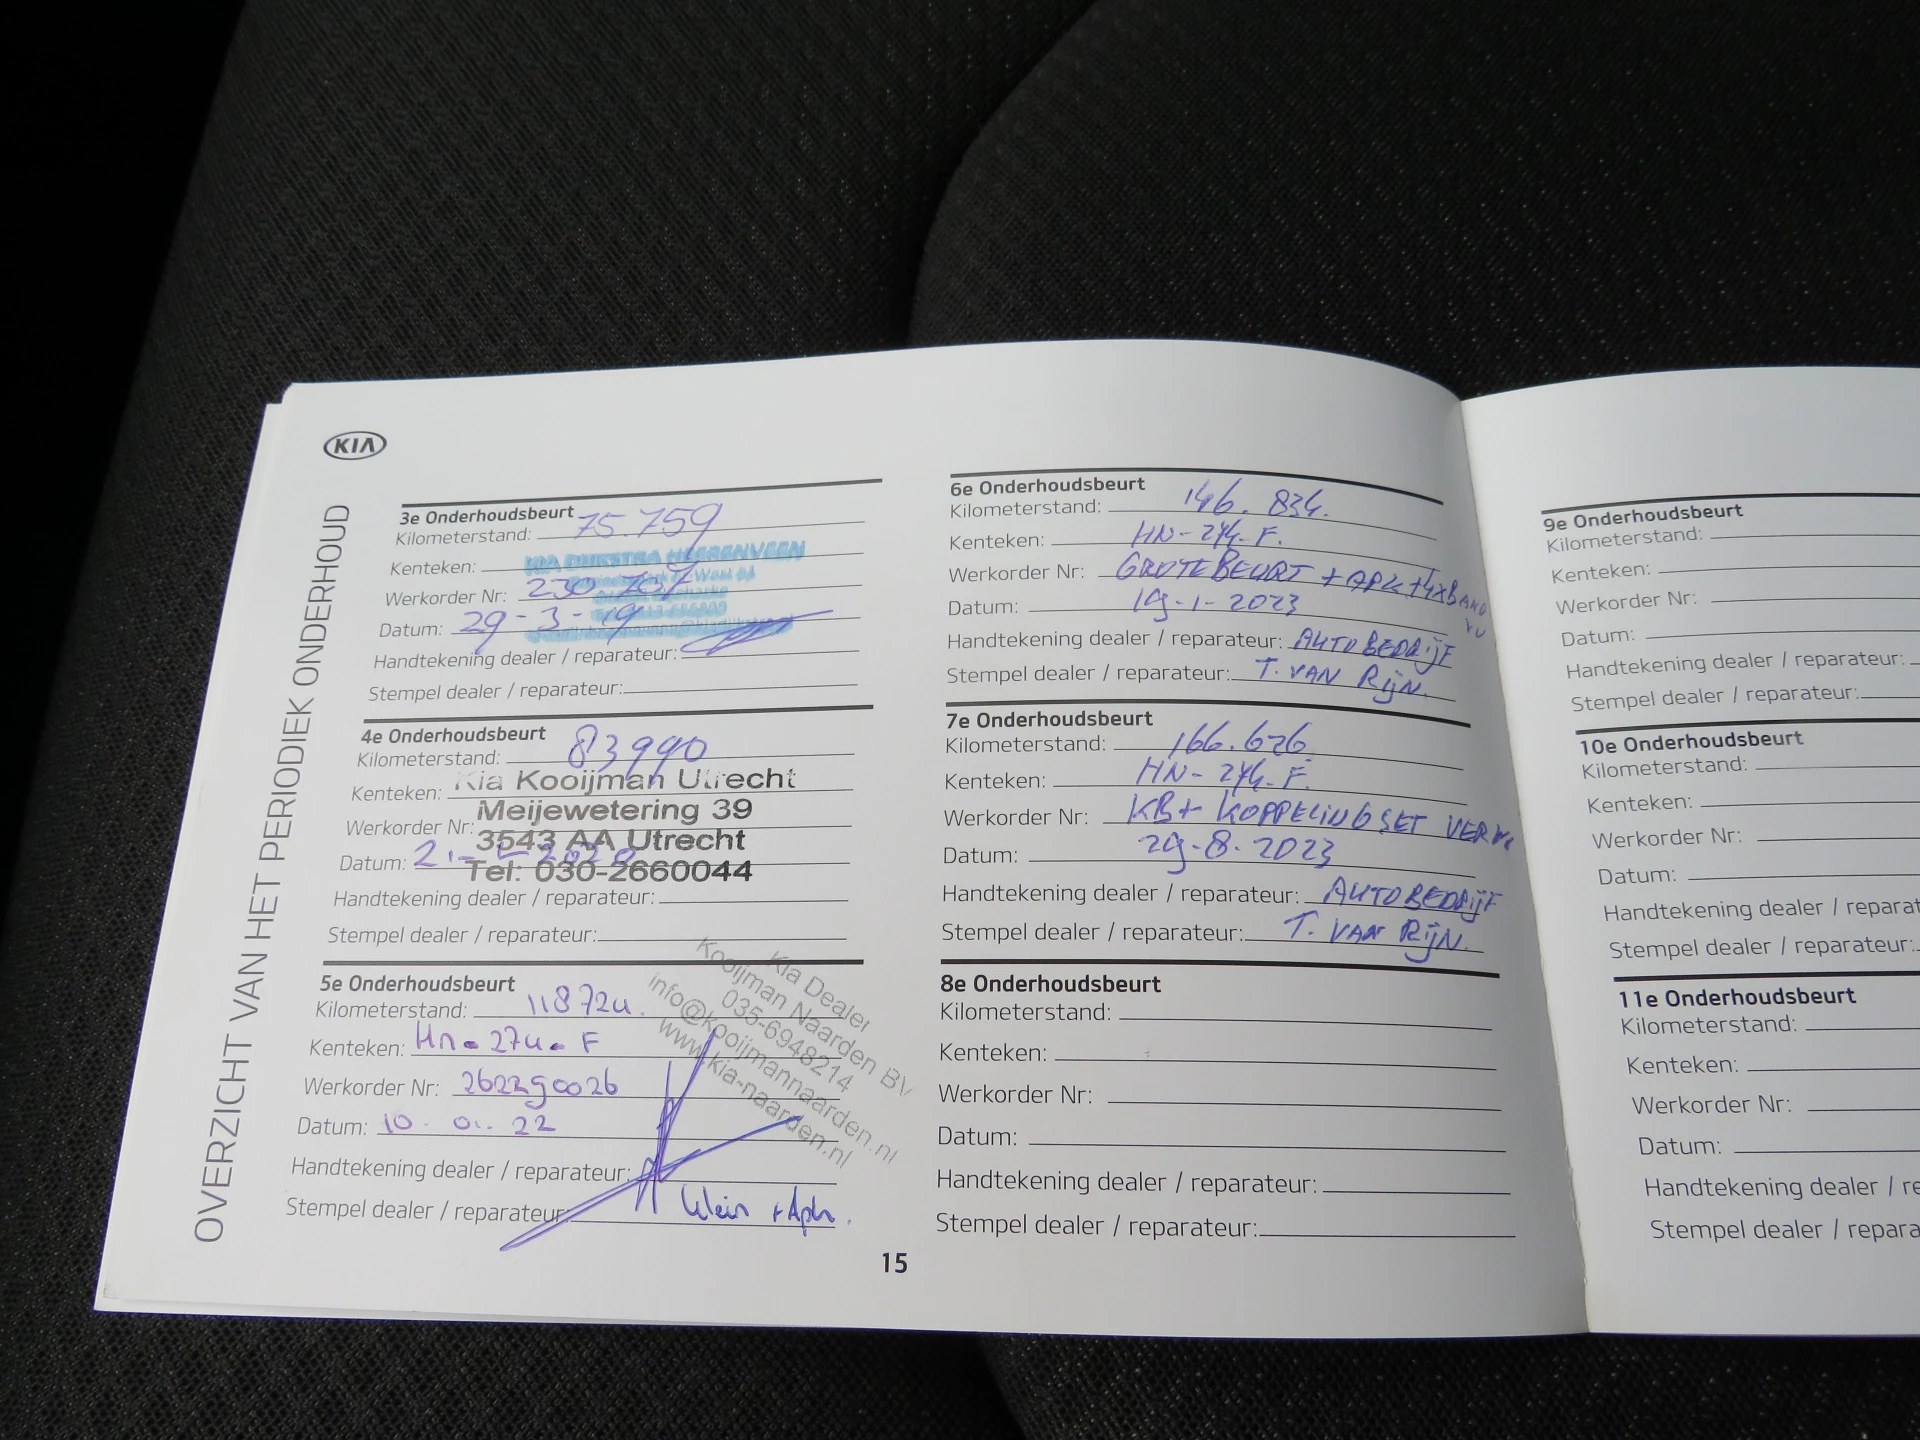 KIA
OVERZICHT VAN HET PERIODIEK ONDERHOUD
3e Onderhoudsbeurt
Kilometerstand: 75.759
Kenteken:
KIA DIJKSTRA HEERENVEEN
Werkorder Nr: 230 707
Datum: 29-3-19
Handtekening dealer / reparateur:
Stempel dealer / reparateur:
4e Onderhoudsbeurt
Kilometerstand: 83990
Kenteken:
Kia Kooijman Utrecht
Meijewetering 39
Werkorder Nr:
3543 AA Utrecht
Datum: 2020
Tel: 030-2660044
Handtekening dealer / reparateur:
Stempel dealer / reparateur:
5e Onderhoudsbeurt
Kilometerstand: 118724.
Kenteken: Hn-274-F
Werkorder Nr: 262290026
Datum: 10-01-22
Handtekening dealer / reparateur:
Stempel dealer / reparateur: klein + Apk.
Kia Dealer
Kooijman Naarden BV
035-6948214
info@kooijmannaarden.nl
www.kia-naarden.nl
6e Onderhoudsbeurt
Kilometerstand: 146.834.
Kenteken: HN-274-F.
Werkorder Nr: GROTE BEURT + APK + 4xBAND
Datum: 19-1-2023
Handtekening dealer / reparateur: AUTOBEDRIJF
Stempel dealer / reparateur: T. VAN RIJN.
7e Onderhoudsbeurt
Kilometerstand: 166.626
Kenteken: HN-274-F.
Werkorder Nr: KB + KOPPELINGSET VERV
Datum: 29-8-2023
Handtekening dealer / reparateur: AUTOBEDRIJF
Stempel dealer / reparateur: T. VAN RIJN.
8e Onderhoudsbeurt
Kilometerstand:
Kenteken:
Werkorder Nr:
Datum:
Handtekening dealer / reparateur:
Stempel dealer / reparateur:
15
9e Onderhoudsbeurt
Kilometerstand:
Kenteken:
Werkorder Nr:
Datum:
Handtekening dealer / reparateur:
Stempel dealer / reparateur:
10e Onderhoudsbeurt
Kilometerstand:
Kenteken:
Werkorder Nr:
Datum:
Handtekening dealer / reparat
Stempel dealer / reparateur:
11e Onderhoudsbeurt
Kilometerstand:
Kenteken:
Werkorder Nr:
Datum:
Handtekening dealer / re
Stempel dealer / repara